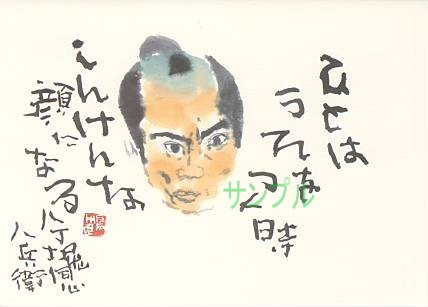 ひとは
うそをつく時
サンプル
しんけんな
顔になる
八兵衛